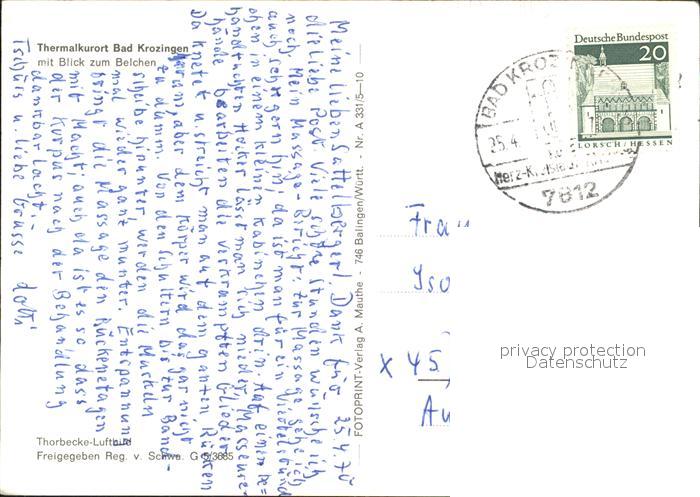 Thermalkurort Bad Krozingen
mit Blick zum Belchen
25.4.70
Meine lieben Sattelberger! Dank für
die liebe Post. Viele schöne Stunden wünsche ich
noch. Mein Massage-Bericht: Zur Massage gehe ich
auch so gern hin, da ist man für ein Viertelstünd
chen in einem kleinen Kabinchen drin. Auf einem be=
handtuchten Hocker lässt man sich nieder, Masseure=
hände bearbeiten die verkrampften Glieder.
Da knetet u. streicht man auf dem ganzen Rücken
herum, aber dem Körper wird das gar nicht
zu dumm. Von den Schultern bis zur Band-
scheibe hinunter werden die Muskeln
mal wieder ganz munter. Entspannung
bringt die Massage den Rückenetagen
mit Macht, auch da ist es so, dass
der Körper nach der Behandlung
dankbar lacht!-
Tschüs u. liebe Grüsse
Thorbecke-Luftbild
Freigegeben Reg. v. Schwa. G 5/3685
FOTOPRINT-Verlag A. Mauthe - 746 Balingen/Württ. - Nr. A 331/5-10
Deutsche Bundespost
20
LORSCH/HESSEN
BAD KROZIN
25.4.
Herz-Kreislauf
7812
Frau
Iso
x 45
Au
privacy protection
Datenschutz